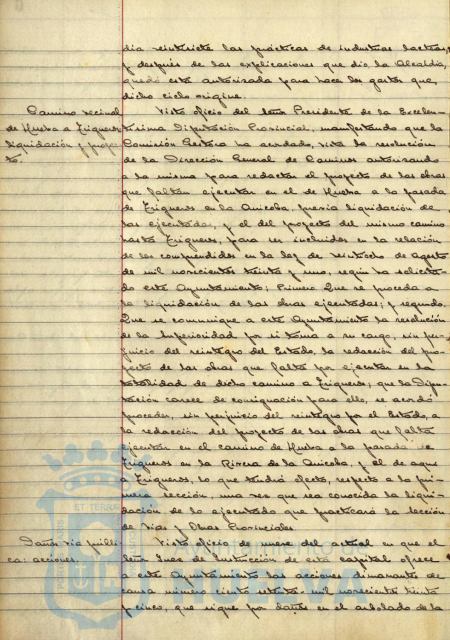 dia veintisiete las prácticas de industrias lacteas,
y después de las explicaciones que dió la Alcaldía,
quedó esta autorizada para hacer los gastos que
dicho ciclo origine.
Camino vecinal
de Huelva a Trigueros
liquidación y proyec-
to.
Visto oficio del Señor Presidente de la Excelen-
tísima Diputación Provincial, manifestando que la
Comisión Gestora ha acordado, vista la resolución
de la Dirección General de Caminos autorizando
a la misma para redactar el proyecto de las obras
que faltan ejecutar en el de Huelva a la pasada
de Trigueros en la Anicoba, previa liquidación de
las ejecutadas, y el del proyecto del mismo camino
hasta Trigueros, para ser incluidos en la relación
de los comprendidos en la ley de veintiocho de Agosto
de mil novecientos treinta y uno, según ha solicita-
do este Ayuntamiento; Primero: Que se proceda a
la liquidación de las obras ejecutadas; y segundo.
Que se comunique a este Ayuntamiento la resolución
de la Superioridad por si toma a su cargo, sin per-
juicio del reintegro del Estado, la redacción del pro-
yecto de las obras que falta por ejecutar en la
totalidad de dicho camino a Trigueros; que la Dipu-
tación carece de consignación para ello, se acordó
proceder, sin perjuicio del reintegro por el Estado, a
la redacción del proyecto de las obras que falta
ejecutar en el camino de Huelva a la pasada de
Trigueros en la Rivera de la Anicoba, y el de aquí
a Trigueros, lo que tendrá efecto, respecto a la pri-
mera sección, una vez que sea conocida la liqui-
dación de lo ejecutado que practicará la Sección
de Vias y Obras Provinciales.
Daños via públi-
ca: acciones.
Visto oficio de nueve del actual en que el
Señor Juez de Instrucción de esta capital ofrece
a este Ayuntamiento las acciones dimanantes de
causa número ciento setenta - mil novecientos treinta
y cinco, que sigue por daños en el arbolado de la